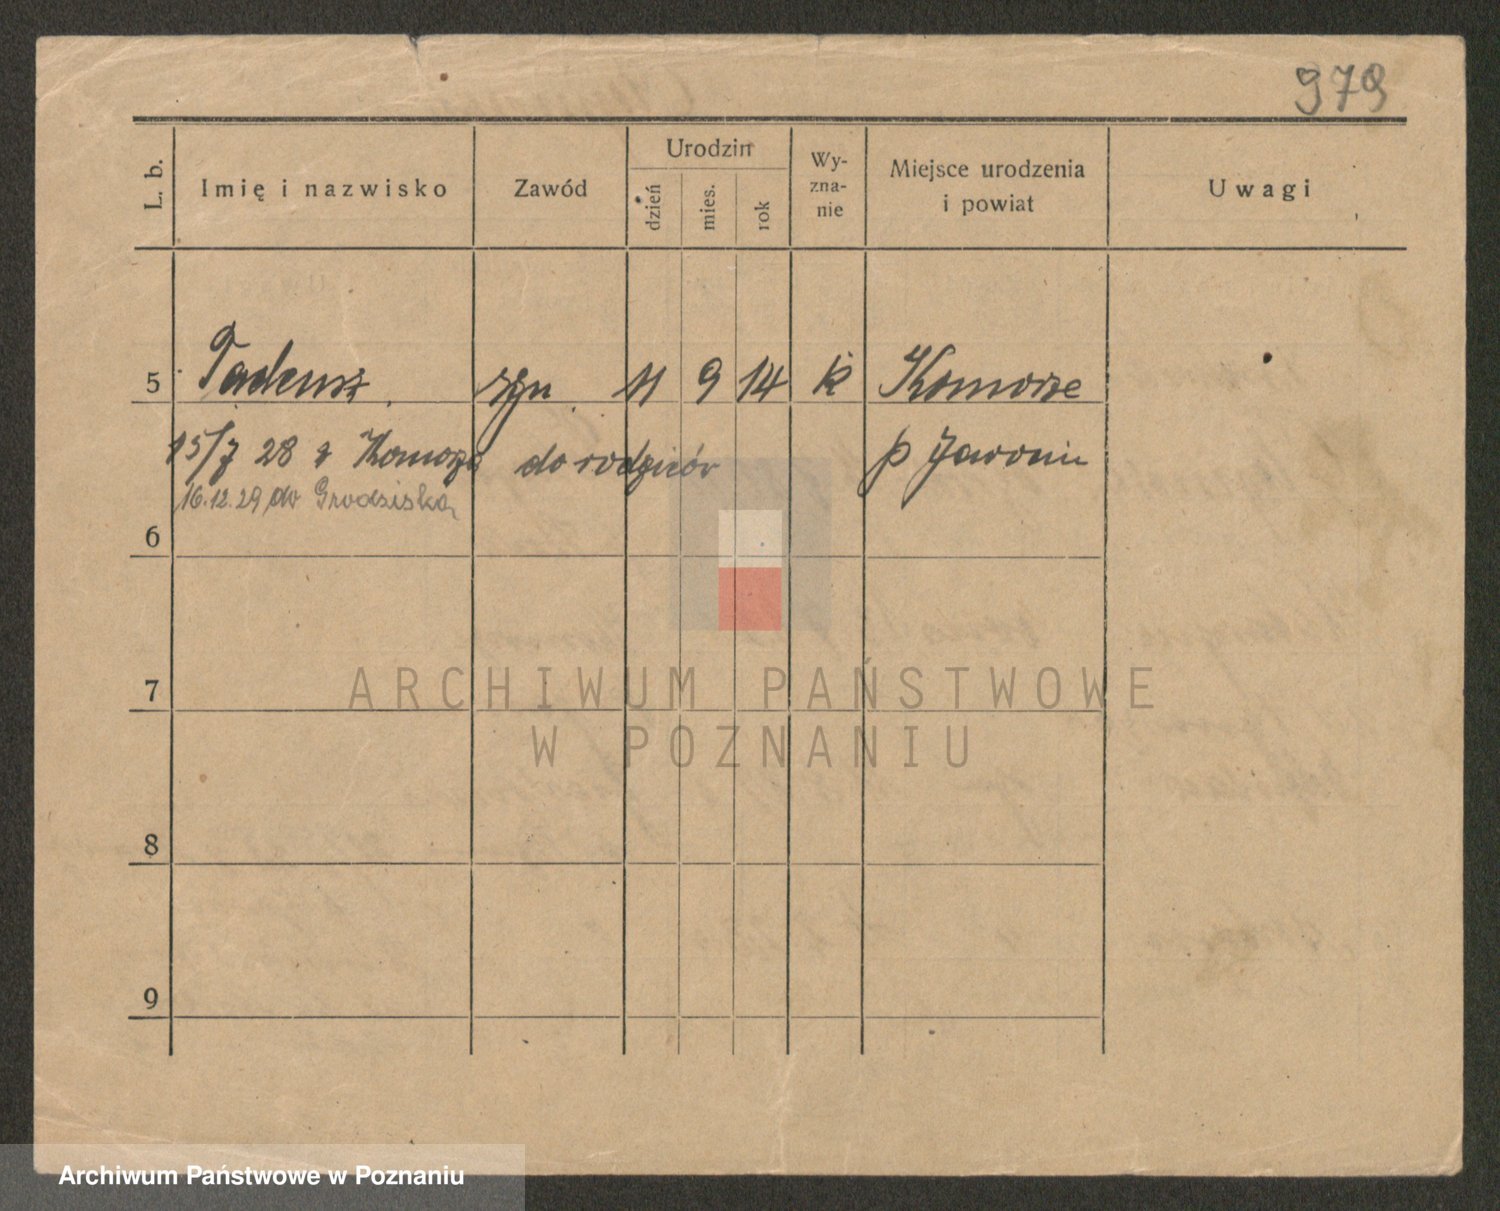 979
L. b.
Imię i nazwisko
Zawód
Urodzin
dzień
mies.
rok
Wy-
zna-
nie
Miejsce urodzenia
i powiat
Uwagi
5 Tadeusz syn 11 9 14 k Komorze
15/7 28 z Komorza do rodziców p Jarocin
16.12.29 do Grodziska
6
7
8
9
ARCHIWUM PAŃSTWOWE
W POZNANIU
Archiwum Państwowe w Poznaniu